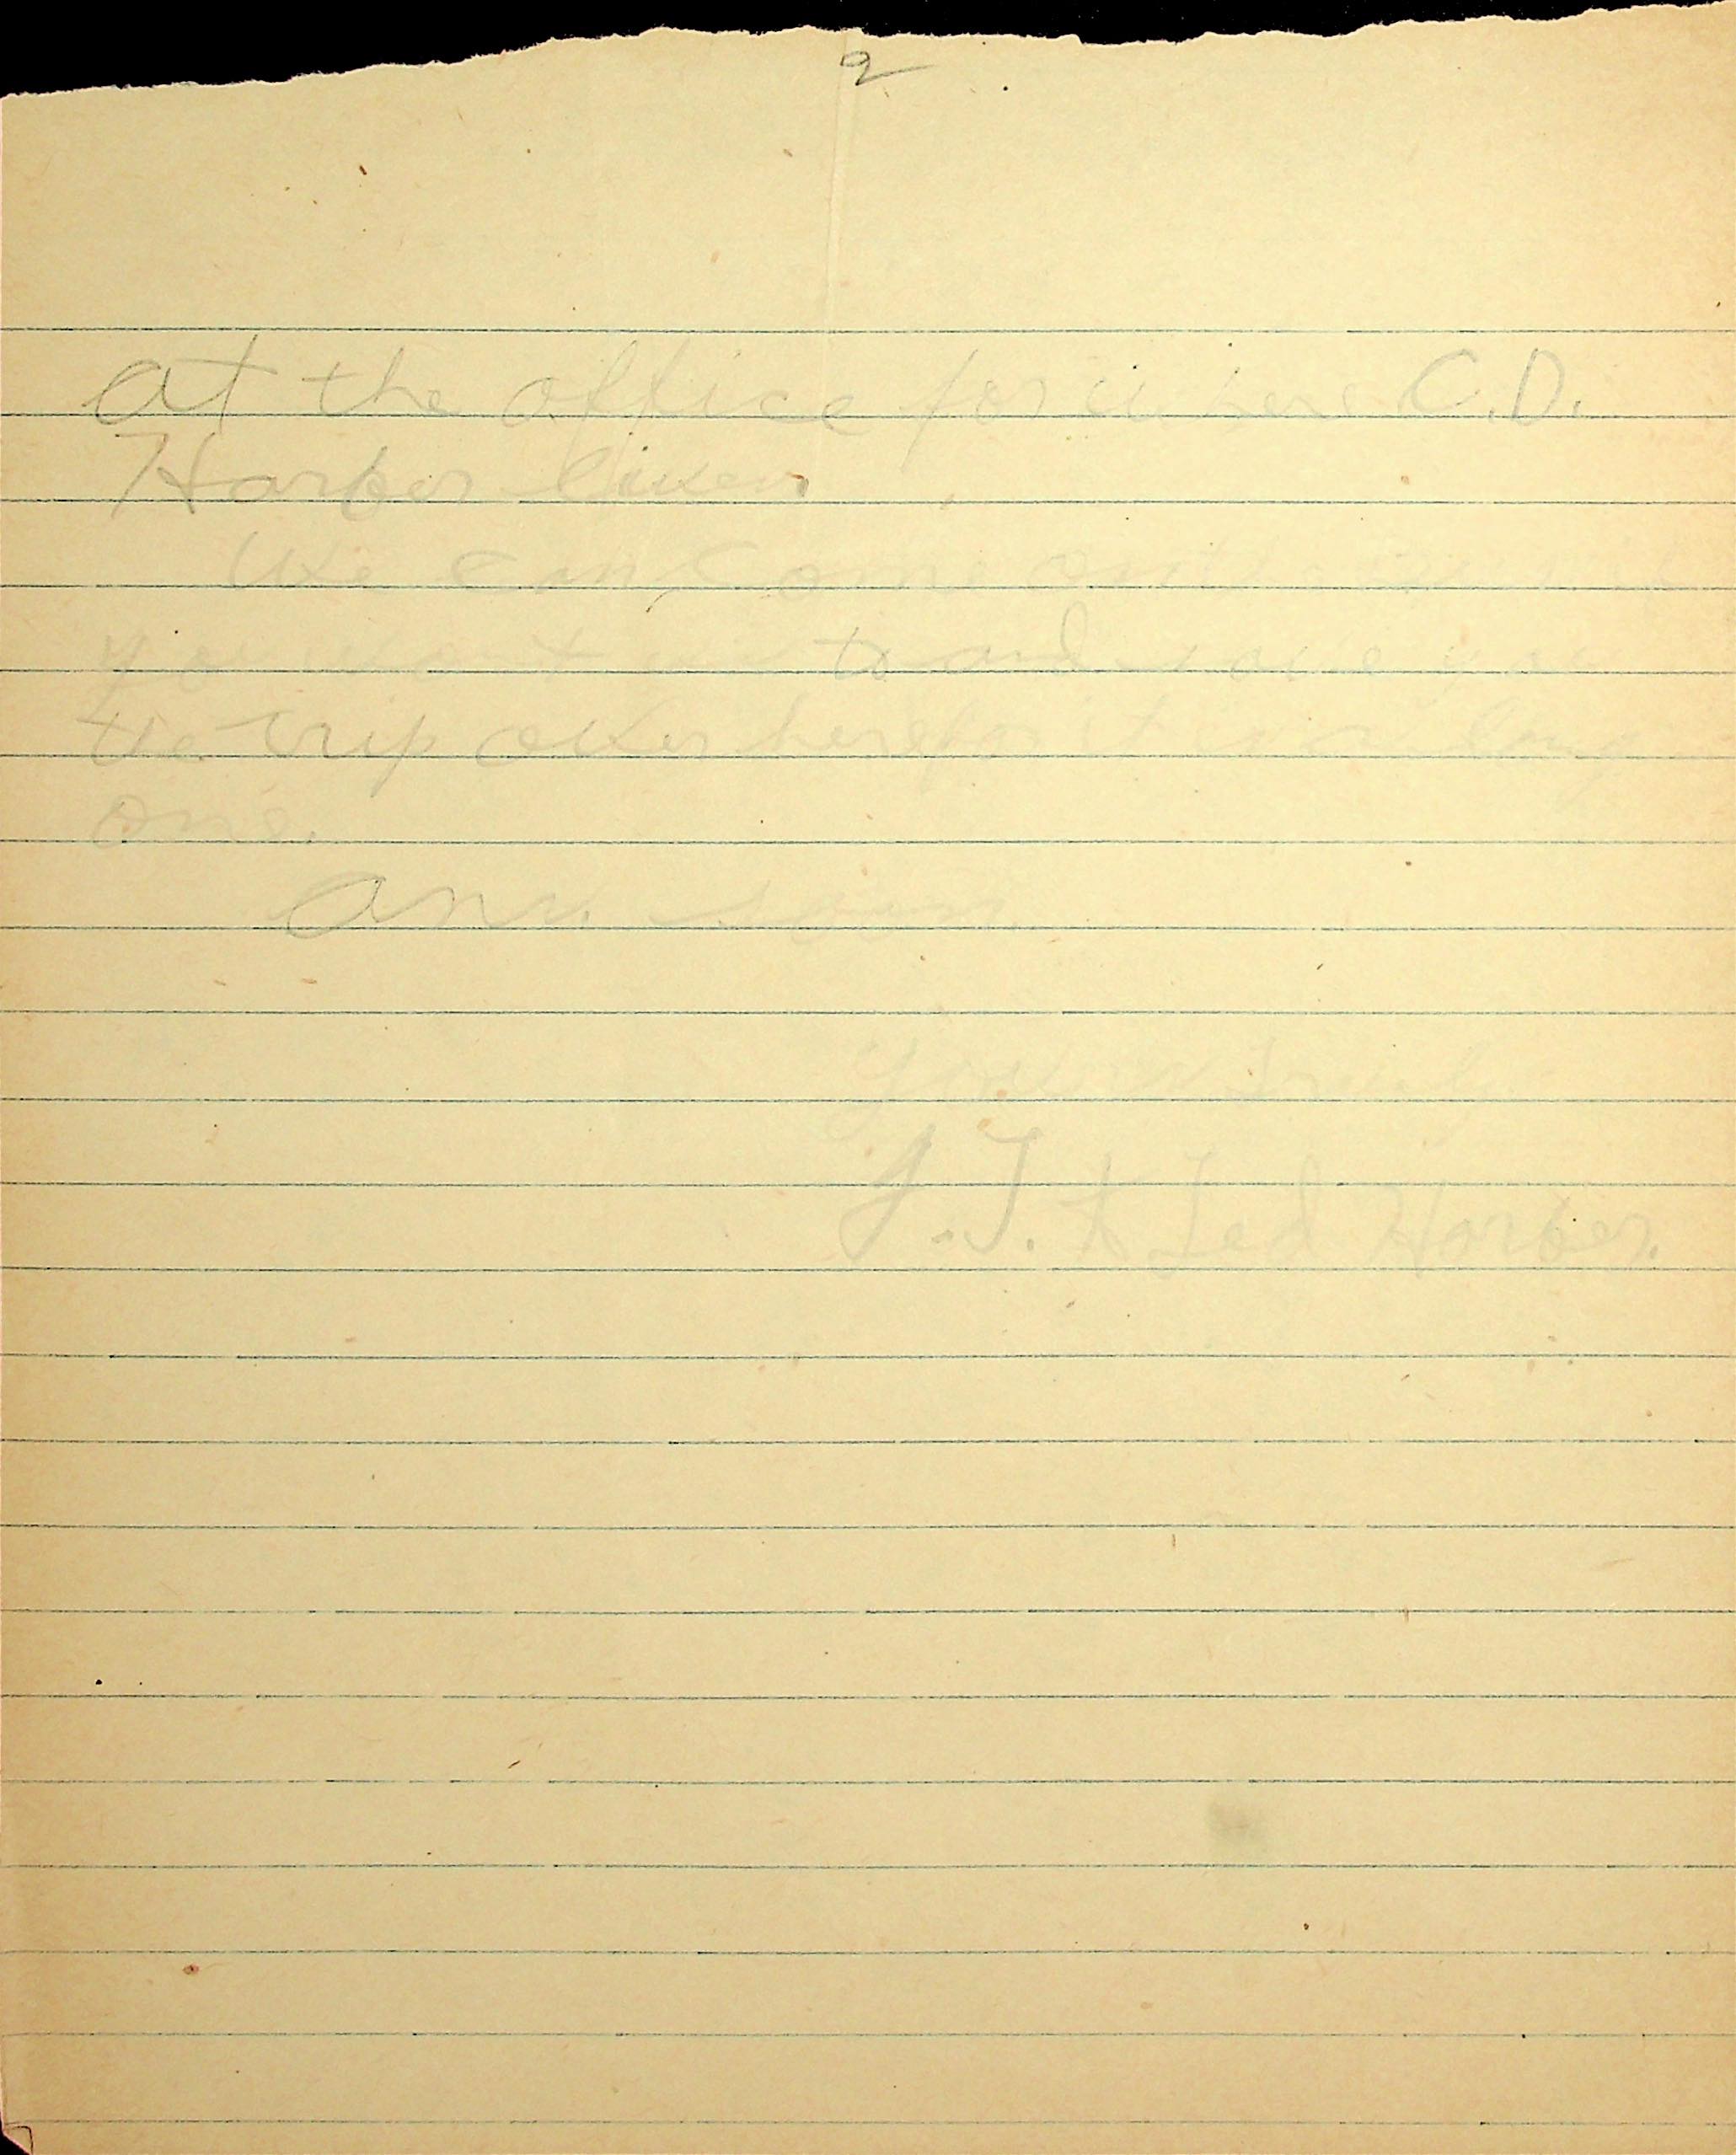 2
at the office for where C.D.
Harber lives.
We can come out
you want us to and save you
the trip over here for it is a long
one.
Ans. soon
Yours truly
J.T. & Ted Harber.